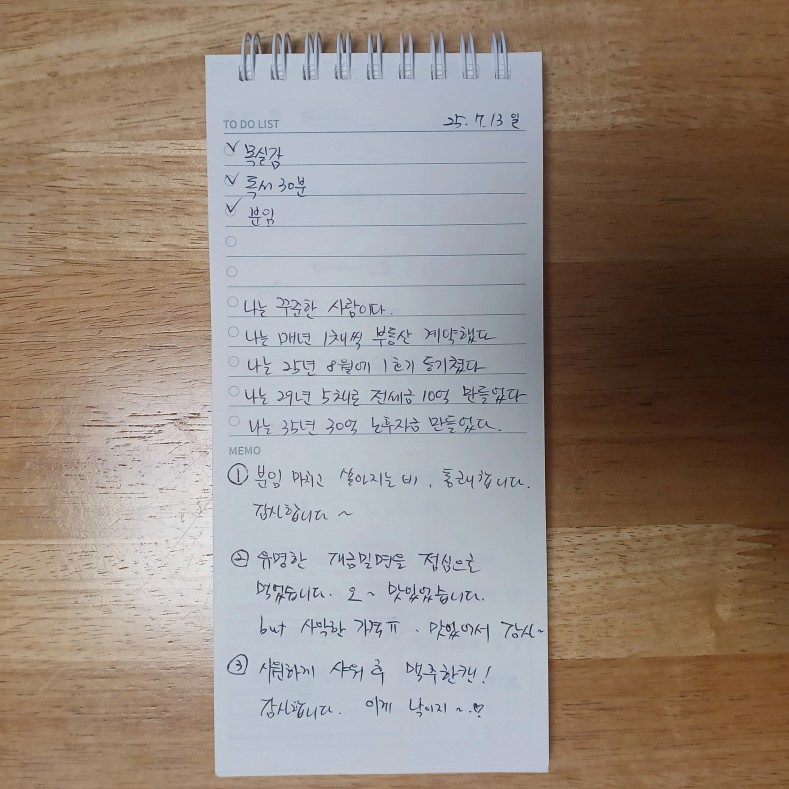 TO DO LIST 25. 7. 13 일
목실감
독서 30분
분임
나는 꾸준한 사람이다.
나는 매년 1채씩 부동산 계약했다
나는 25년 8월에 1호기 등기쳤다
나는 29년 5채로 전세금 10억 만들었다
나는 35년 30억 노후자금 만들었다.
MEMO
① 분임 마치고 쏟아지는 비,
감사합니다 ~
② 유명한 개금밀면을 점심으로
먹었습니다. 오~ 맛있었습니다.
but 사악한 가격ㅠ. 맛있어서 감사~
③ 시원하게 샤워 후 맥주한캔!
감사합니다. 이게 낙이지~.♡